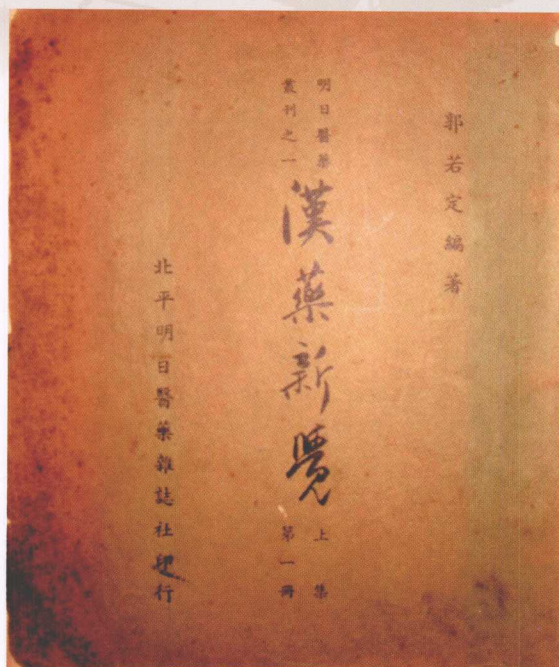 郭若定編著
明日醫藥
叢刊之一
漢藥新覺
上集
第一冊
北平明日醫藥雜誌社印行